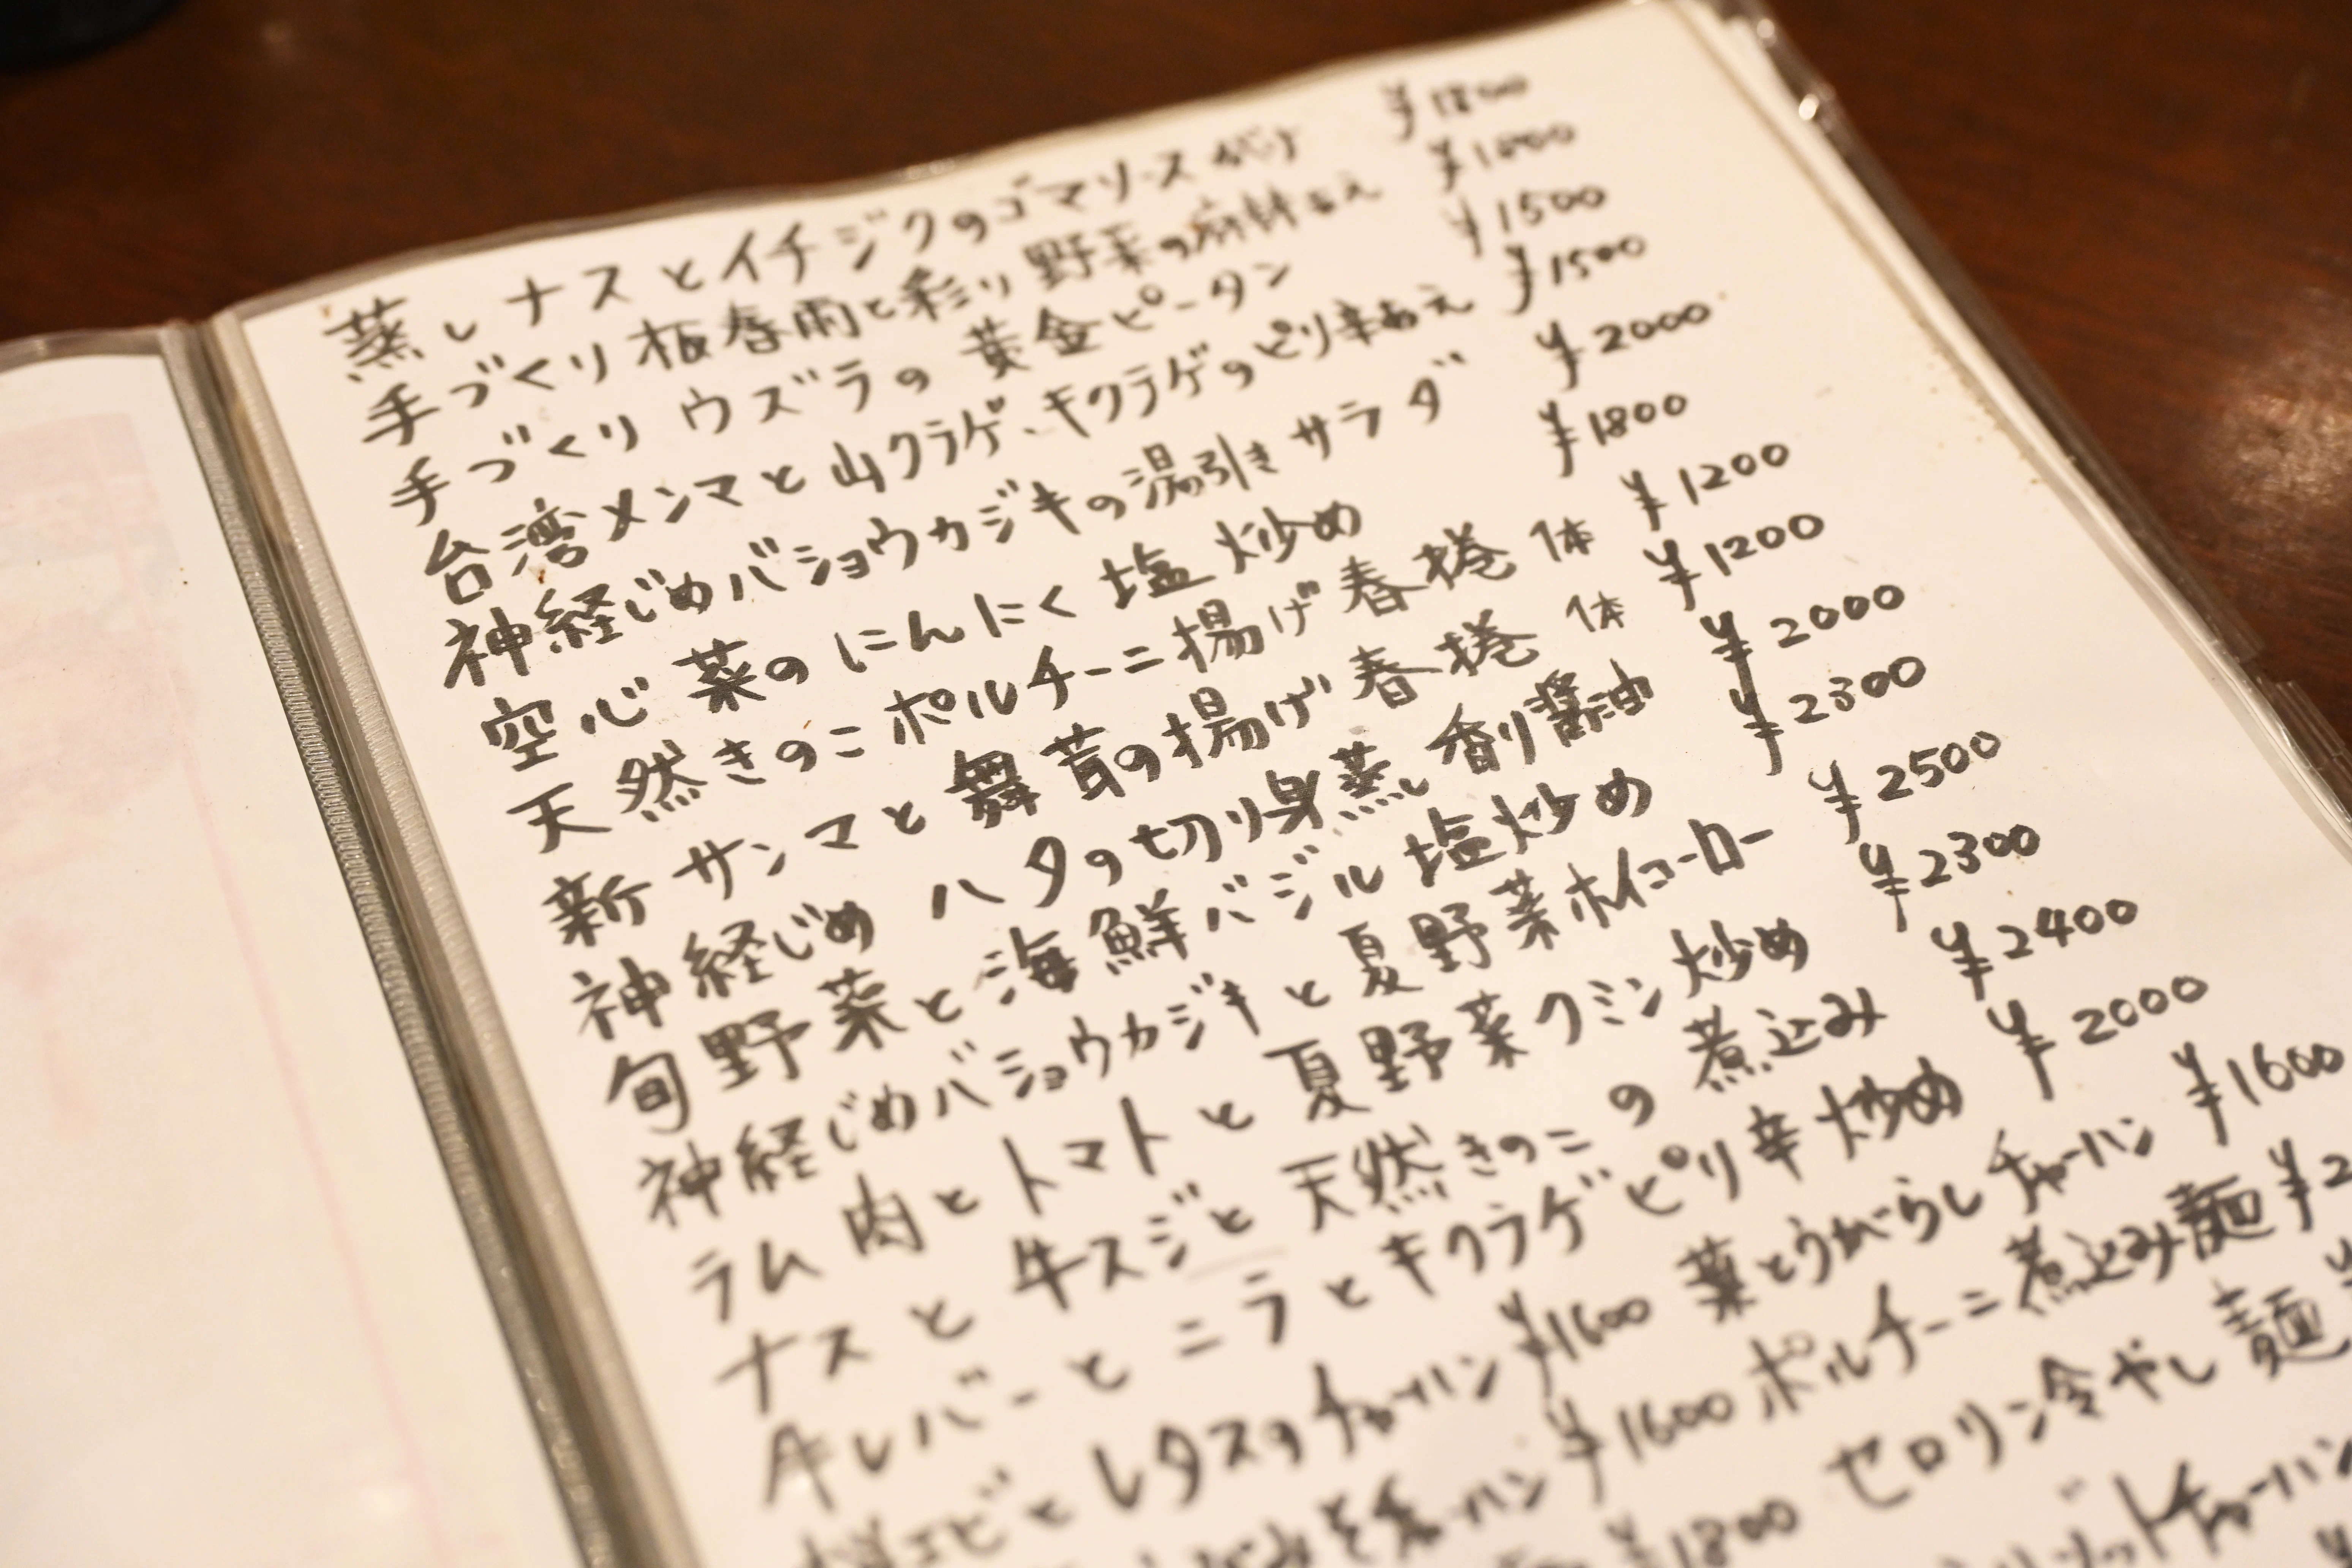 蒸しナスとイチジクのゴマソースがけ ¥1800
手づくり板春雨と彩り野菜の麻辣あえ ¥1600
手づくりウズラの黄金ピータン ¥1500
台湾メンマと山クラゲ、キクラゲのピリ辛あえ ¥1500
神経じめバショウカジキの湯引きサラダ ¥2000
空心菜のにんにく塩炒め ¥1800
天然きのこポルチーニ揚げ春捲 1体 ¥1200
新サンマと舞茸の揚げ春捲 1体 ¥1200
神経じめ ハタの切り身蒸し 香り醤油 ¥2000
旬野菜と海鮮バジル塩炒め ¥2300
神経じめバショウカジキと夏野菜ホイコーロー ¥2500
ラム肉とトマトと夏野菜クミン炒め ¥2300
ナスと牛スジと天然きのこの煮込み ¥2400
牛レバーとニラとキクラゲピリ辛炒め ¥2000
エビとレタスのチャーハン ¥1600 葉とうがらしチャーハン ¥1600
ハン ¥1600 ポルチーニ煮込み麺 ¥2
¥1800 セロリン冷やし麺
チャーハン